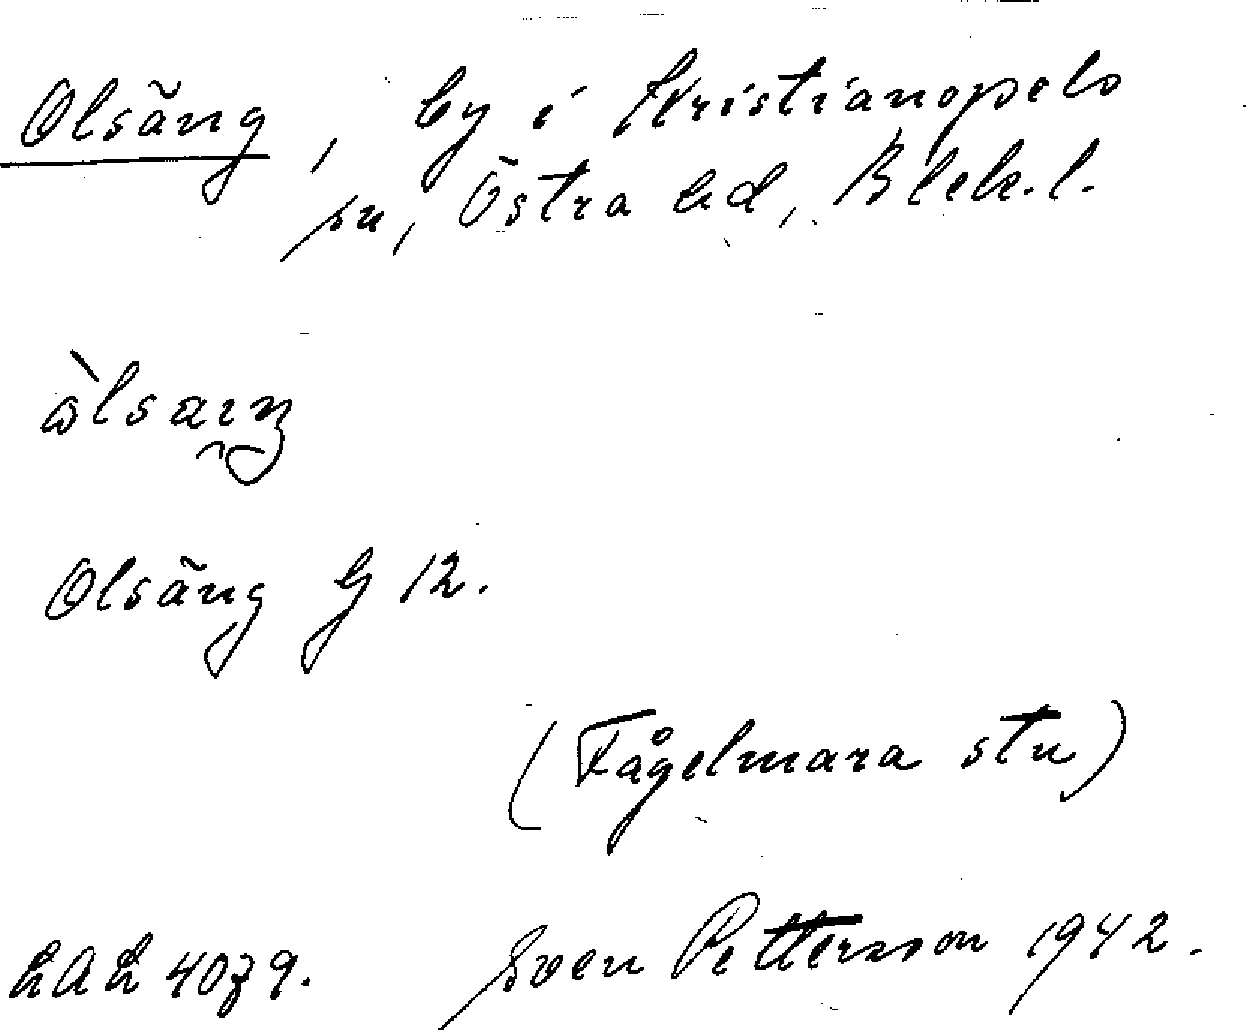 Olsäng, by i Kristianopels
sn, Östra hd, Blek. l.
Olsäng G 12.
(Fågelmara stn)
LAL 4079. Sven Pettersson 1942.